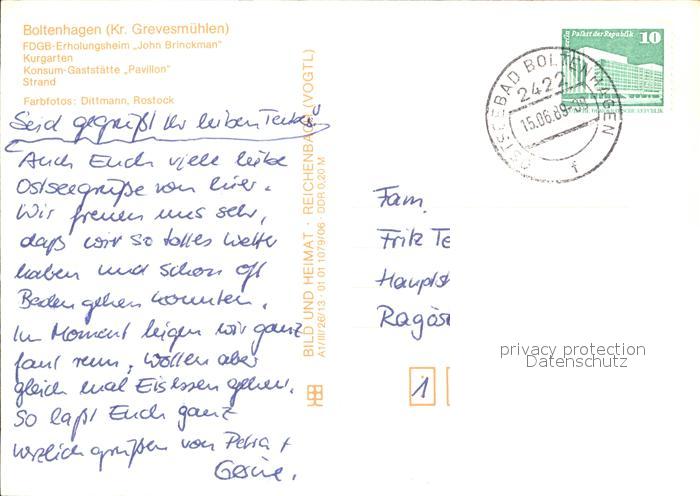 Boltenhagen (Kr. Grevesmühlen)
FDGB-Erholungsheim „John Brinckman"
Kurgarten
Konsum-Gaststätte „Pavillon"
Strand
Farbfotos: Dittmann, Rostock
Seid gegrüßt Ihr lieben
Auch Euch viele liebe
Ostseegrüße von hier.
Wir freuen uns sehr,
daß wir so tolles Wetter
haben und schon oft
Baden gehen konnten.
Im Moment liegen wir ganz
faul rum, wollen aber
gleich mal Eis essen gehen.
So laßt Euch ganz
herzlich grüßen von Petra +
BILD UND HEIMAT · REICHENBACH (VOGTL)
A1/III/26/13 01 01 1079/06 · DDR 0,20 M
Palast der Republik 10
DEUTSCHE DEMOKRATISCHE REPUBLIK
OSTSEEBAD BOLTENHAGEN
2422
15.06.89
f
Fam.
Fritz Te
Hauptst
Ragös
1
privacy protection
Datenschutz